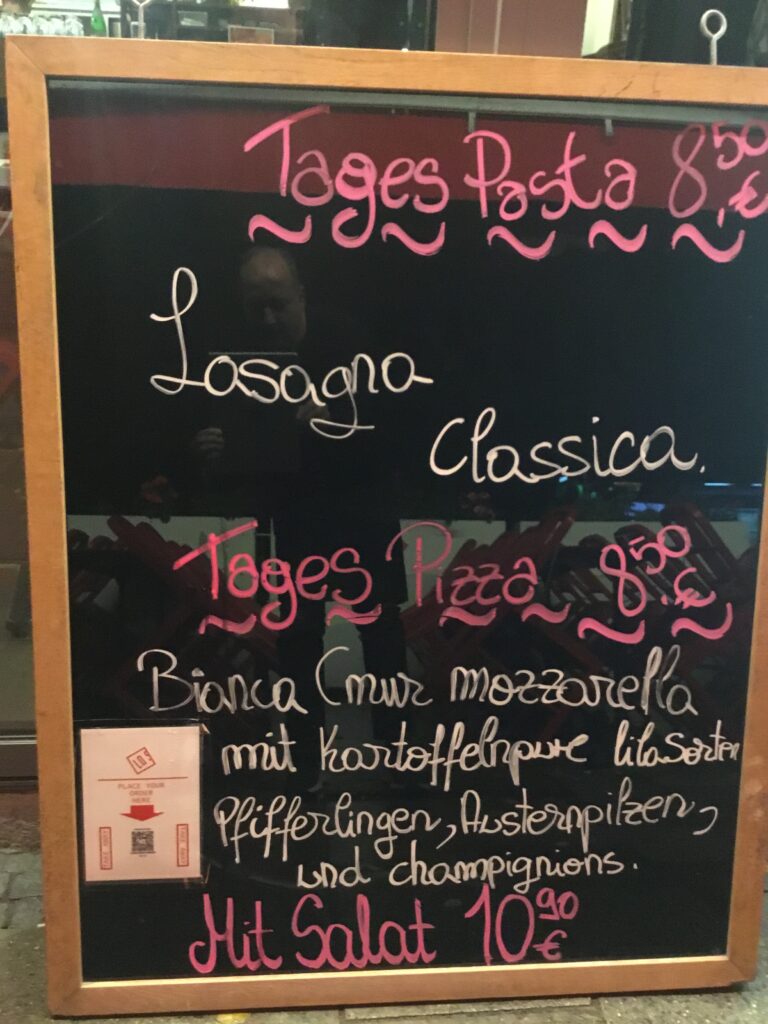 Tages Pasta 8,50 €
Lasagna
Classica.
Tages Pizza 8,50 €
Bianca (nur mozzarella
mit Kartoffelnpure lila Sorten
Pfifferlingen, Austernpilzen,
und champignions.
PLACE YOUR
ORDER
HERE
Mit Salat 10 90 €